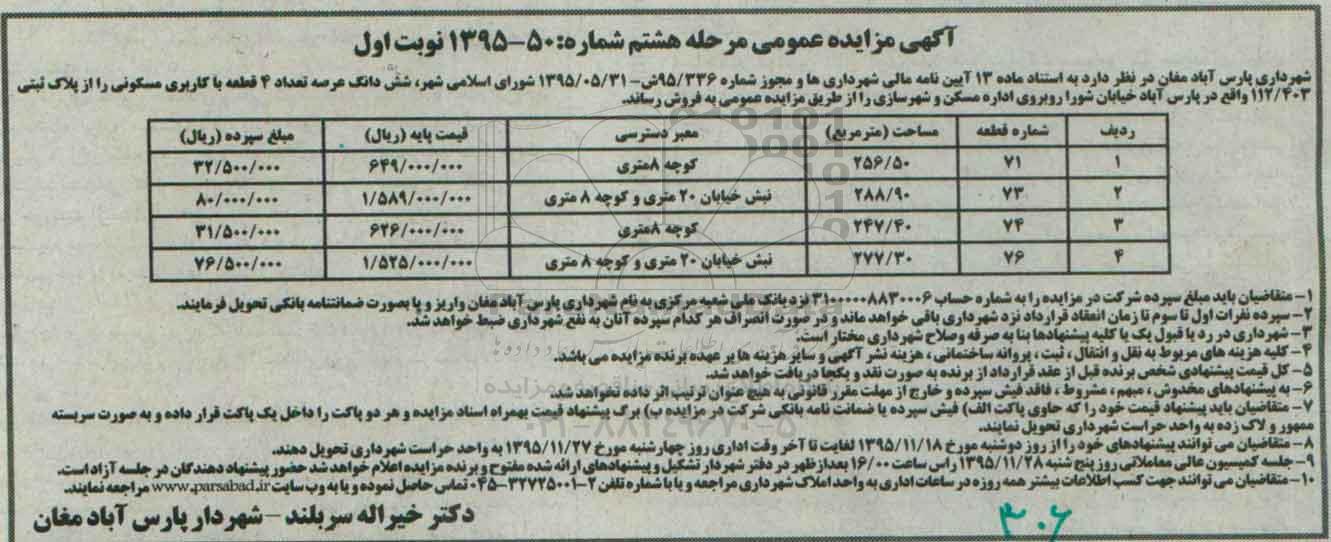 آگهی مزایده عمومی مرحله هشتم شماره: ۵۰-۱۳۹۵ نوبت اول
شهرداری پارس آباد مغان در نظر دارد به استناد ماده ۱۳ آیین نامه مالی شهرداری ها و مجوز شماره ۹۵/۳۳۶ش-۱۳۹۵/۰۵/۳۱ شورای اسلامی شهر، شش دانگ عرصه تعداد ۴ قطعه با کاربری مسکونی را از پلاک ثبتی
۱۱۲/۴۰۳ واقع در پارس آباد خیابان شورا روبروی اداره مسکن و شهرسازی را از طریق مزایده عمومی به فروش رساند.
ردیف شماره قطعه مساحت (مترمربع) معبر دسترسی قیمت پایه (ریال) مبلغ سپرده (ریال)
۱ ۷۱ ۲۵۶/۵۰ کوچه ۸متری ۶۴۹/۰۰۰/۰۰۰ ۳۲/۵۰۰/۰۰۰
۲ ۷۳ ۲۸۸/۹۰ نبش خیابان ۲۰ متری و کوچه ۸ متری ۱/۵۸۹/۰۰۰/۰۰۰ ۸۰/۰۰۰/۰۰۰
۳ ۷۴ ۲۴۷/۴۰ کوچه ۸متری ۶۲۶/۰۰۰/۰۰۰ ۳۱/۵۰۰/۰۰۰
۴ ۷۶ ۲۷۷/۳۰ نبش خیابان ۲۰ متری و کوچه ۸ متری ۱/۵۲۵/۰۰۰/۰۰۰ ۷۶/۵۰۰/۰۰۰
۱- متقاضیان باید مبلغ سپرده شرکت در مزایده را به شماره حساب ۳۱۰۰۰۰۰۸۸۳۰۰۰۶ نزد بانک ملی شعبه مرکزی به نام شهرداری پارس آباد مغان واریز و یا بصورت ضمانتنامه بانکی تحویل فرمایند.
۲- سپرده نفرات اول تا سوم تا زمان انعقاد قرارداد نزد شهرداری باقی خواهد ماند و در صورت انصراف هر کدام سپرده آنان به نفع شهرداری ضبط خواهد شد.
۳- شهرداری در رد یا قبول یک یا کلیه پیشنهادها بنا به صرفه وصلاح شهرداری مختار است.
۴- کلیه هزینه های مربوط به نقل و انتقال ، ثبت ، پروانه ساختمانی ، هزینه نشر آگهی و سایر هزینه ها بر عهده برنده مزایده می باشد.
۵- کل قیمت پیشنهادی شخص برنده قبل از عقد قرارداد از برنده به صورت نقد و یکجا دریافت خواهد شد.
۶- به پیشنهادهای مخدوش ، مبهم ، مشروط ، فاقد فیش سپرده و خارج از مهلت مقرر قانونی به هیچ عنوان ترتیب اثر داده نخواهد شد.
۷- متقاضیان باید پیشنهاد قیمت خود را که حاوی پاکت الف) فیش سپرده یا ضمانت نامه بانکی شرکت در مزایده ب) برگ پیشنهاد قیمت بهمراه اسناد مزایده و هر دو پاکت را داخل یک پاکت قرار داده و به صورت سربسته
ممهور و لاک زده به واحد حراست شهرداری تحویل نمایند.
۸- متقاضیان می توانند پیشنهادهای خود را از روز دوشنبه مورخ ۱۳۹۵/۱۱/۱۸ لغایت تا آخر وقت اداری روز چهارشنبه مورخ ۱۳۹۵/۱۱/۲۷ به واحد حراست شهرداری تحویل دهند.
۹- جلسه کمیسیون عالی معاملاتی روز پنج شنبه ۱۳۹۵/۱۱/۲۸ راس ساعت ۱۶/۰۰ بعدازظهر در دفتر شهردار تشکیل و پیشنهادهای ارائه شده مفتوح و برنده مزایده اعلام خواهد شد حضور پیشنهاد دهندگان در جلسه آزاد است.
۱۰- متقاضیان می توانند جهت کسب اطلاعات بیشتر همه روزه در ساعات اداری به واحد املاک شهرداری مراجعه و یا با شماره تلفن ۲-۳۲۷۲۵۰۰۱-۰۴۵ تماس حاصل نموده و یا به وب سایت www.parsabad.ir مراجعه نمایند.
دکتر خیراله سربلند - شهردار پارس آباد مغان
۳۰۶